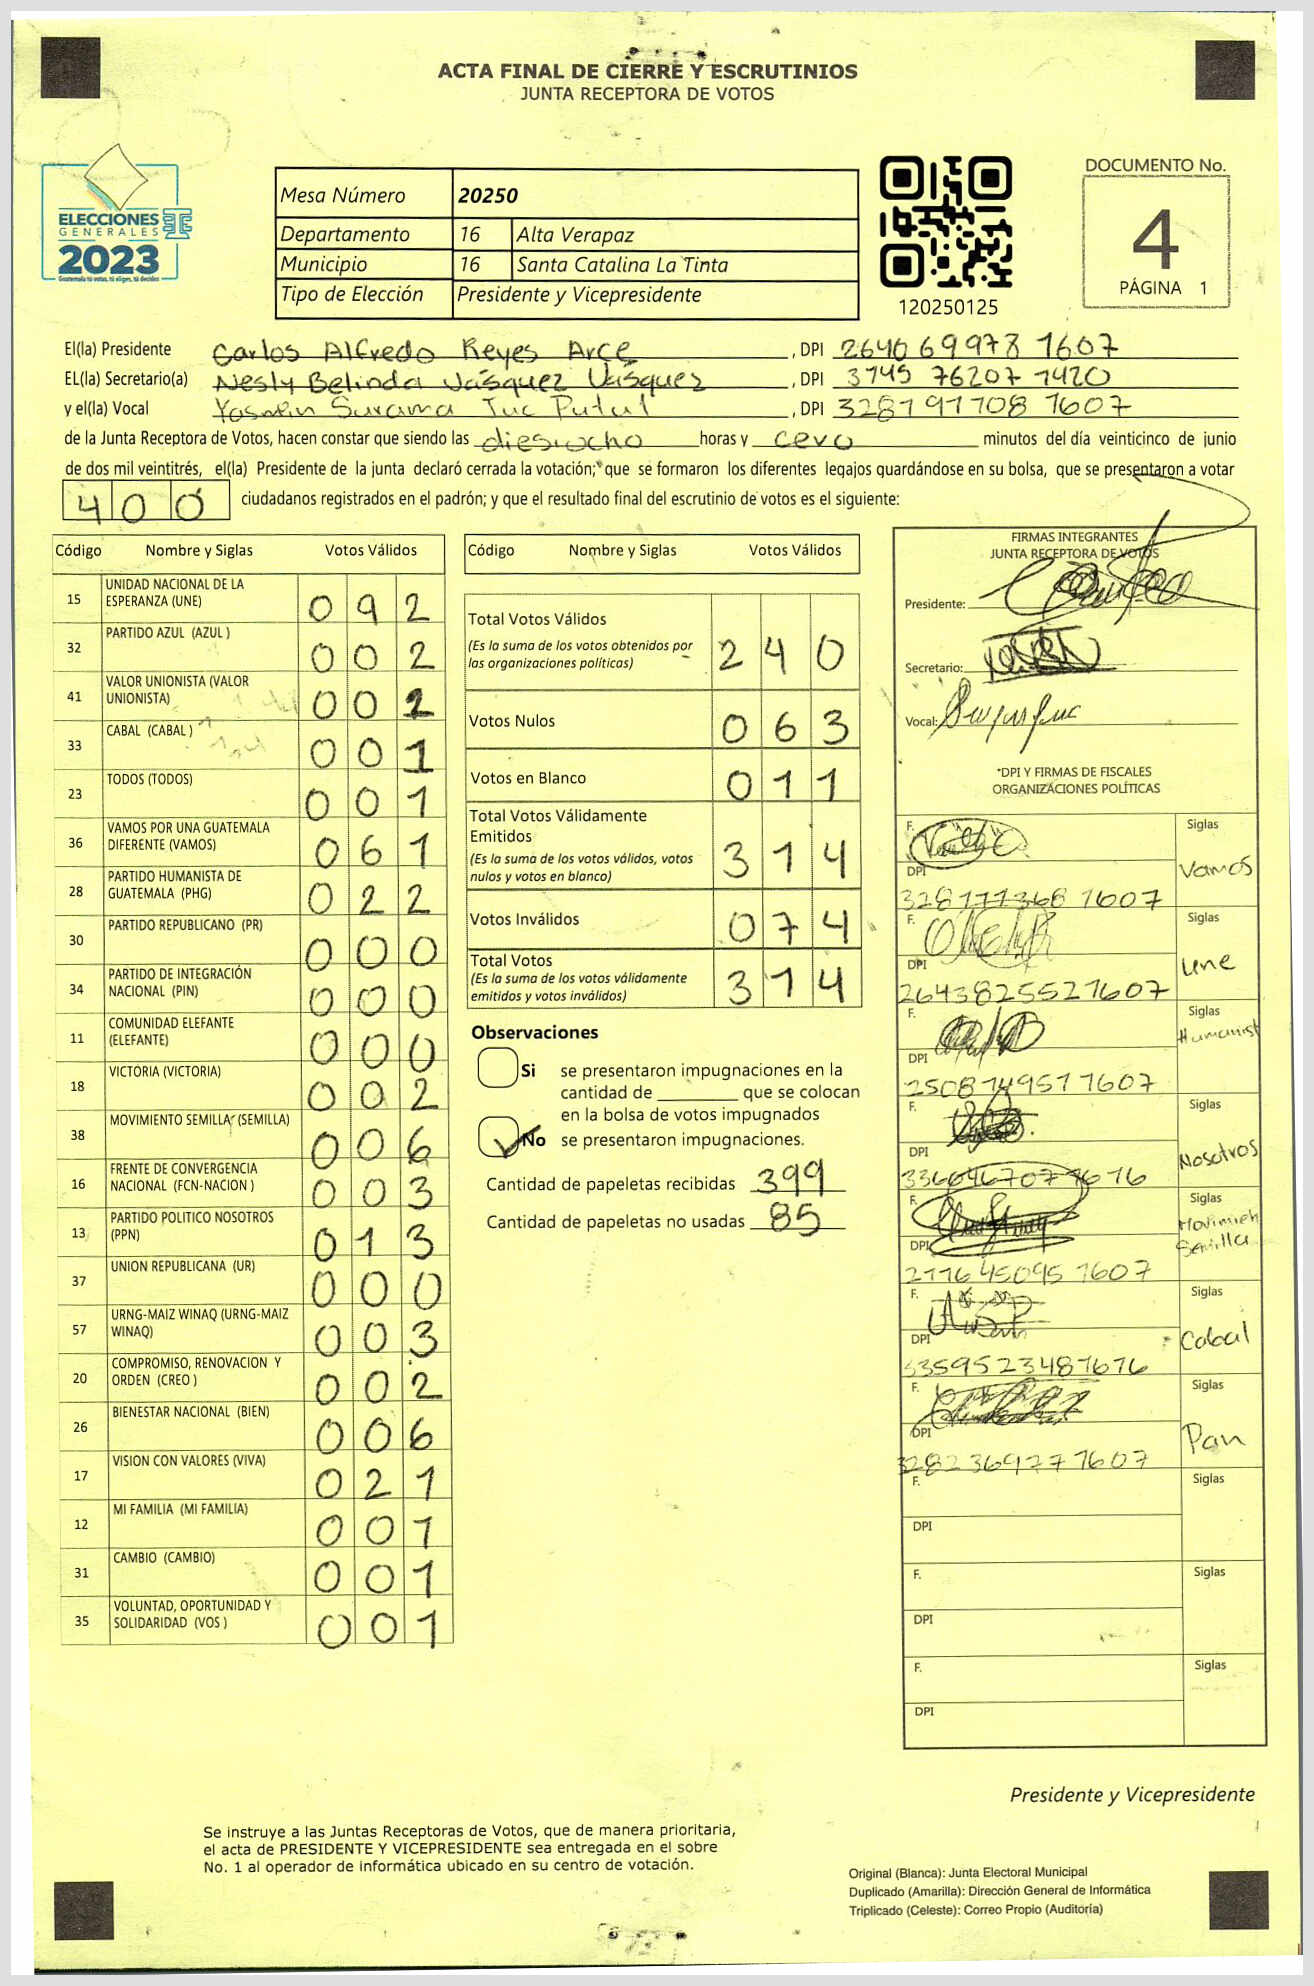 ACTA FINAL DE CIERRE Y ESCRUTINIOS
JUNTA RECEPTORA DE VOTOS
ELECCIONES
GENERALES
2023
Guatemala tú votas, tú eliges, tú decides
Mesa Número 20250
Departamento 16 Alta Verapaz
Municipio 16 Santa Catalina La Tinta
Tipo de Elección Presidente y Vicepresidente
120250125
DOCUMENTO No.
4
PÁGINA 1
El(la) Presidente Carlos Alfredo Reyes Arce , DPI 2640 69978 1607
EL(la) Secretario(a) Nesly Belinda Vásquez Vásquez , DPI 3745 76207 1420
y el(la) Vocal Yasmin Surama Tuc Putul , DPI 3287 97708 1607
de la Junta Receptora de Votos, hacen constar que siendo las diesiocho horas y cero minutos del día veinticinco de junio
de dos mil veintitrés, el(la) Presidente de la junta declaró cerrada la votación; que se formaron los diferentes legajos guardándose en su bolsa, que se presentaron a votar
400 ciudadanos registrados en el padrón; y que el resultado final del escrutinio de votos es el siguiente:
Código Nombre y Siglas Votos Válidos
15 UNIDAD NACIONAL DE LA ESPERANZA (UNE) 092
32 PARTIDO AZUL (AZUL ) 002
41 VALOR UNIONISTA (VALOR UNIONISTA) 002
33 CABAL (CABAL ) 001
23 TODOS (TODOS) 001
36 VAMOS POR UNA GUATEMALA DIFERENTE (VAMOS) 061
28 PARTIDO HUMANISTA DE GUATEMALA (PHG) 022
30 PARTIDO REPUBLICANO (PR) 000
34 PARTIDO DE INTEGRACIÓN NACIONAL (PIN) 000
11 COMUNIDAD ELEFANTE (ELEFANTE) 000
18 VICTORIA (VICTORIA) 002
38 MOVIMIENTO SEMILLA (SEMILLA) 006
16 FRENTE DE CONVERGENCIA NACIONAL (FCN-NACION ) 003
13 PARTIDO POLITICO NOSOTROS (PPN) 013
37 UNION REPUBLICANA (UR) 000
57 URNG-MAIZ WINAQ (URNG-MAIZ WINAQ) 003
20 COMPROMISO, RENOVACION Y ORDEN (CREO ) 002
26 BIENESTAR NACIONAL (BIEN) 006
17 VISION CON VALORES (VIVA) 021
12 MI FAMILIA (MI FAMILIA) 001
31 CAMBIO (CAMBIO) 001
35 VOLUNTAD, OPORTUNIDAD Y SOLIDARIDAD (VOS ) 001
Código Nombre y Siglas Votos Válidos
Total Votos Válidos 240
(Es la suma de los votos obtenidos por
las organizaciones políticas)
Votos Nulos 063
Votos en Blanco 011
Total Votos Válidamente
Emitidos 314
(Es la suma de los votos válidos, votos
nulos y votos en blanco)
Votos Inválidos 074
Total Votos 314
(Es la suma de los votos válidamente
emitidos y votos inválidos)
Observaciones
Si se presentaron impugnaciones en la
cantidad de ________ que se colocan
en la bolsa de votos impugnados
No se presentaron impugnaciones.
Cantidad de papeletas recibidas 399
Cantidad de papeletas no usadas 85
FIRMAS INTEGRANTES
JUNTA RECEPTORA DE VOTOS
Presidente:
Secretario:
Vocal:
*DPI Y FIRMAS DE FISCALES
ORGANIZACIONES POLÍTICAS
F. Siglas
DPI Vamos
328777368 1607
F. Siglas
DPI Une
2643825521607
F. Siglas
DPI Humanist
2508749577607
F. Siglas
DPI Nosotros
F. Siglas
DPI Movimien Semilla
2776 45095 1607
F. Siglas
DPI Cabal
3359523487676
F. Siglas
DPI Pan
3282369277607
F. Siglas
DPI
F. Siglas
DPI
F. Siglas
DPI
Presidente y Vicepresidente
Se instruye a las Juntas Receptoras de Votos, que de manera prioritaria,
el acta de PRESIDENTE Y VICEPRESIDENTE sea entregada en el sobre
No. 1 al operador de informática ubicado en su centro de votación.
Original (Blanca): Junta Electoral Municipal
Duplicado (Amarilla): Dirección General de Informática
Triplicado (Celeste): Correo Propio (Auditoría)